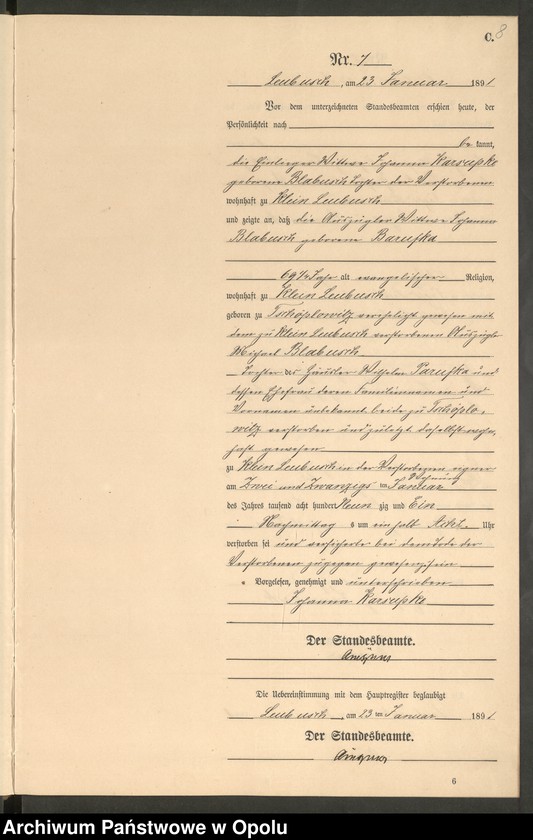 C. 8
Nr. 7
Leubusch, am 23 Januar 1891
Vor dem unterzeichneten Standesbeamten erschien heute, der
Persönlichkeit nach
be kannt,
die Einlieger Wittwe Johanna Karsupke
geborene Blabusch Tochter der Verstorbenen
wohnhaft zu Klein Leubusch
und zeigte an, daß die Auszügler Wittwe Johanna
Blabusch geborene Barufka
69 1/2 Jahr alt evangelischer Religion,
wohnhaft zu Klein Leubusch
geboren zu Tschöplowitz verehelicht gewesen mit
dem zu Klein Leubusch verstorbenen Auszügler
Michael Blabusch
Tochter des Häusler Wilhelm Parufka und
dessen Ehefrau deren Familiennamen und
Vornamen unbekannt beide zu Tschöplo-
witz verstorben und zuletzt daselbst wohn-
haft gewesen
zu Klein Leubusch in der Verstorbenen eigner
Behausung
am Zwei und Zwanzigs ten Januar
des Jahres tausend acht hundert Neun zig und Ein
Nachmittag s um ein halb Acht Uhr
verstorben sei und versicherte bei dem Tode der
Verstorbenen zugegen gewesen zu sein
Vorgelesen, genehmigt und unterschrieben
Johanna Karsupke
Der Standesbeamte.
Die Uebereinstimmung mit dem Hauptregister beglaubigt
Leubusch, am 23 ten Januar 1891
Der Standesbeamte.
6
Archiwum Państwowe w Opolu